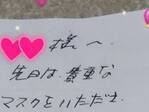 様へ
先日は貴重な
マスクをいただき